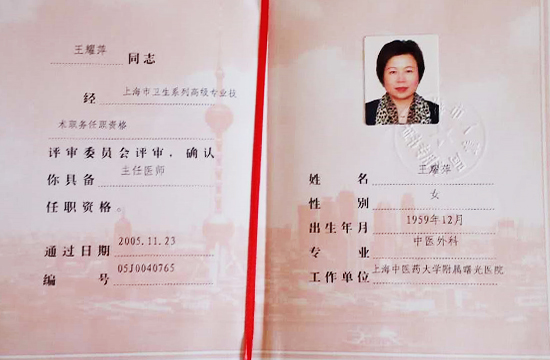 王耀萍 同志
经 上海市卫生系列高级专业技
术职务任职资格
评审委员会评审，确认
你具备 主任医师
任职资格。
通过日期 2005.11.23
编 号 05J0040765
姓 名 王耀萍
性 别 女
出生年月 1959年12月
专 业 中医外科
工作单位 上海中医药大学附属曙光医院